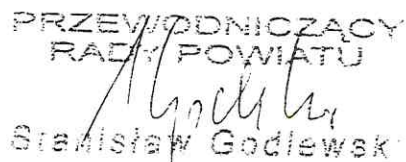 PRZEWODNICZĄCY
RADY POWIATU
Stanisław Godlewsk